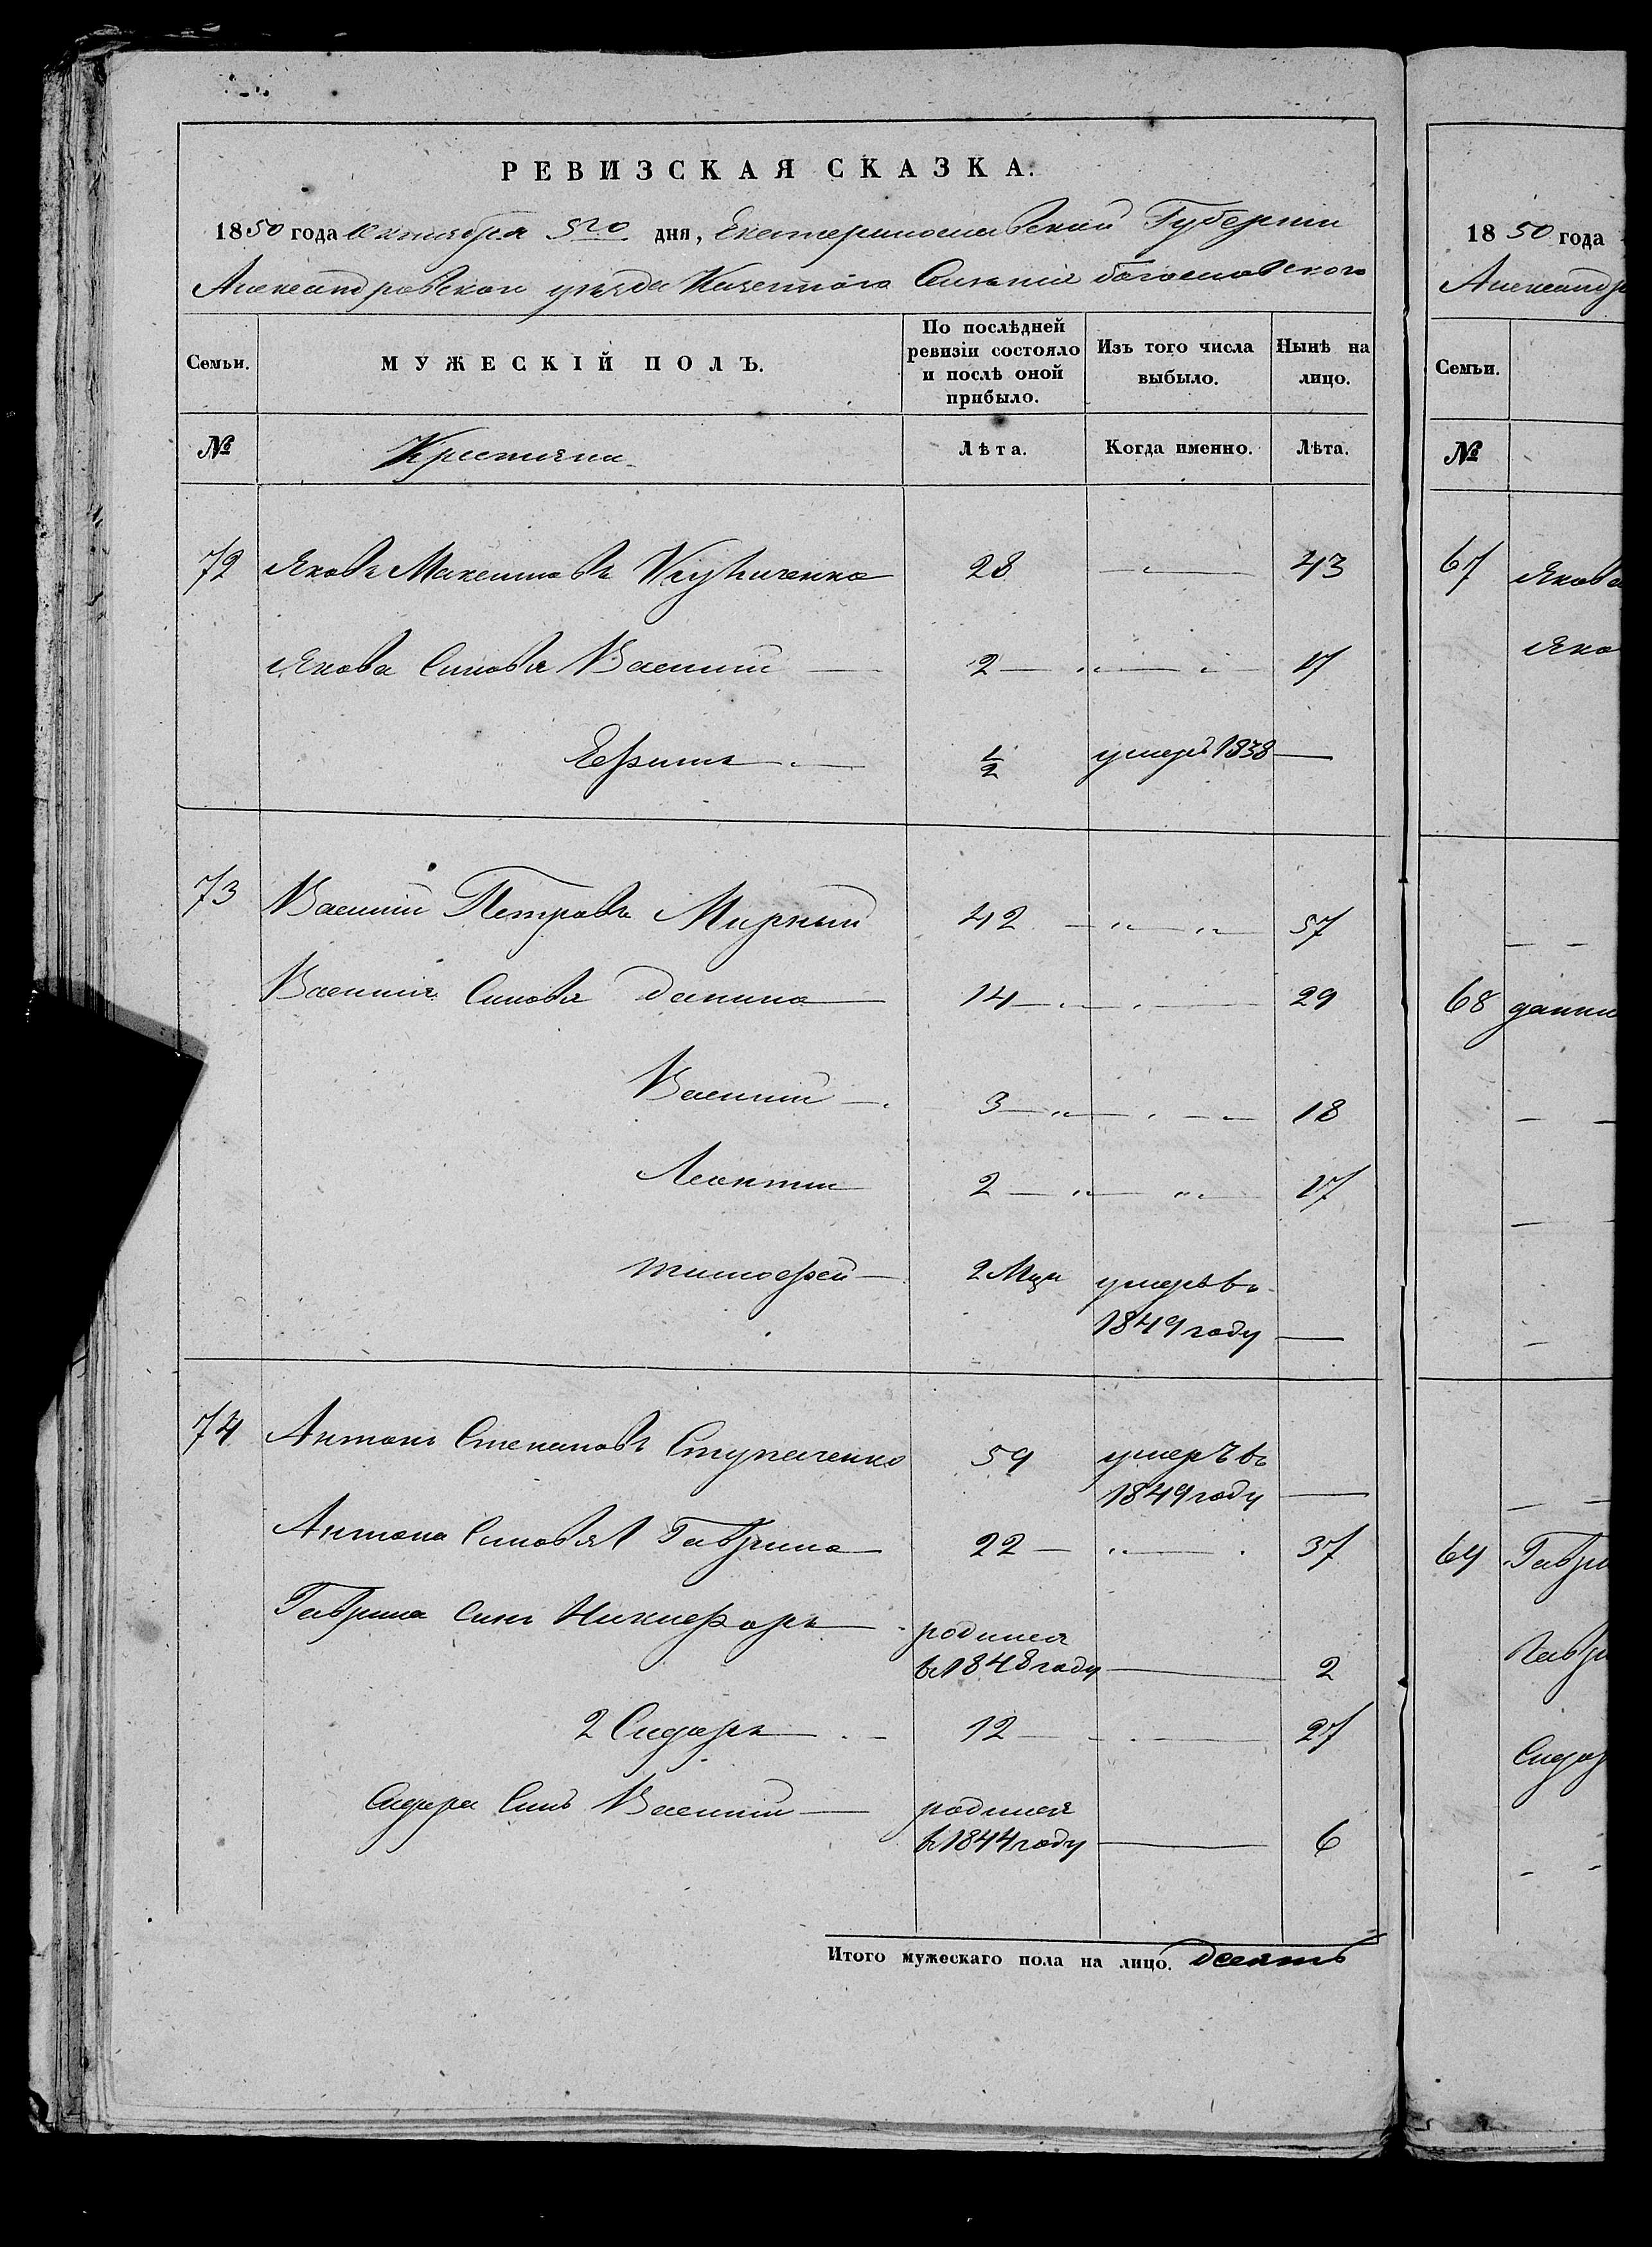 РЕВИЗСКАЯ СКАЗКА.
1850 года октября 5го дня, Екатеринославской Губернии
Александровского уезда Казенного Селения Богословского
Семьи. МУЖЕСКІЙ ПОЛЪ. По послѣдней ревизіи состояло и послѣ оной прибыло. Изъ того числа выбыло. Нынѣ на лицо.
№ Крестьяне Лѣта. Когда именно. Лѣта.
72 Яковъ Максимовъ 28 — 43
Якова Синовя Василий 2 — 17
Ефимъ ½ умеръ 1838 —
73 Василий Петровъ Мирный 42 — 57
Василия Синовя Данило 14 — 29
Василий 3 — 18
Леонтий 2 — 17
Тимофей 2 Мци умеръ въ
1849 году —
74 Антонъ Степановъ Ступаченко 59 умеръ въ
1849 году —
Антона Синовя 1 Гаврило 22 — 37
Гаврила Синъ Никифоръ родился
в 1848 году — 2
2 Сидоръ 12 — 27
Сидора Синъ Василий родился
в 1844 году — 6
Итого мужескаго пола на лицо. десять
1850 года
Александр
Семьи.
№
67 Якова
Яко
68 дани
69 Гаври
Гавр
Сидор